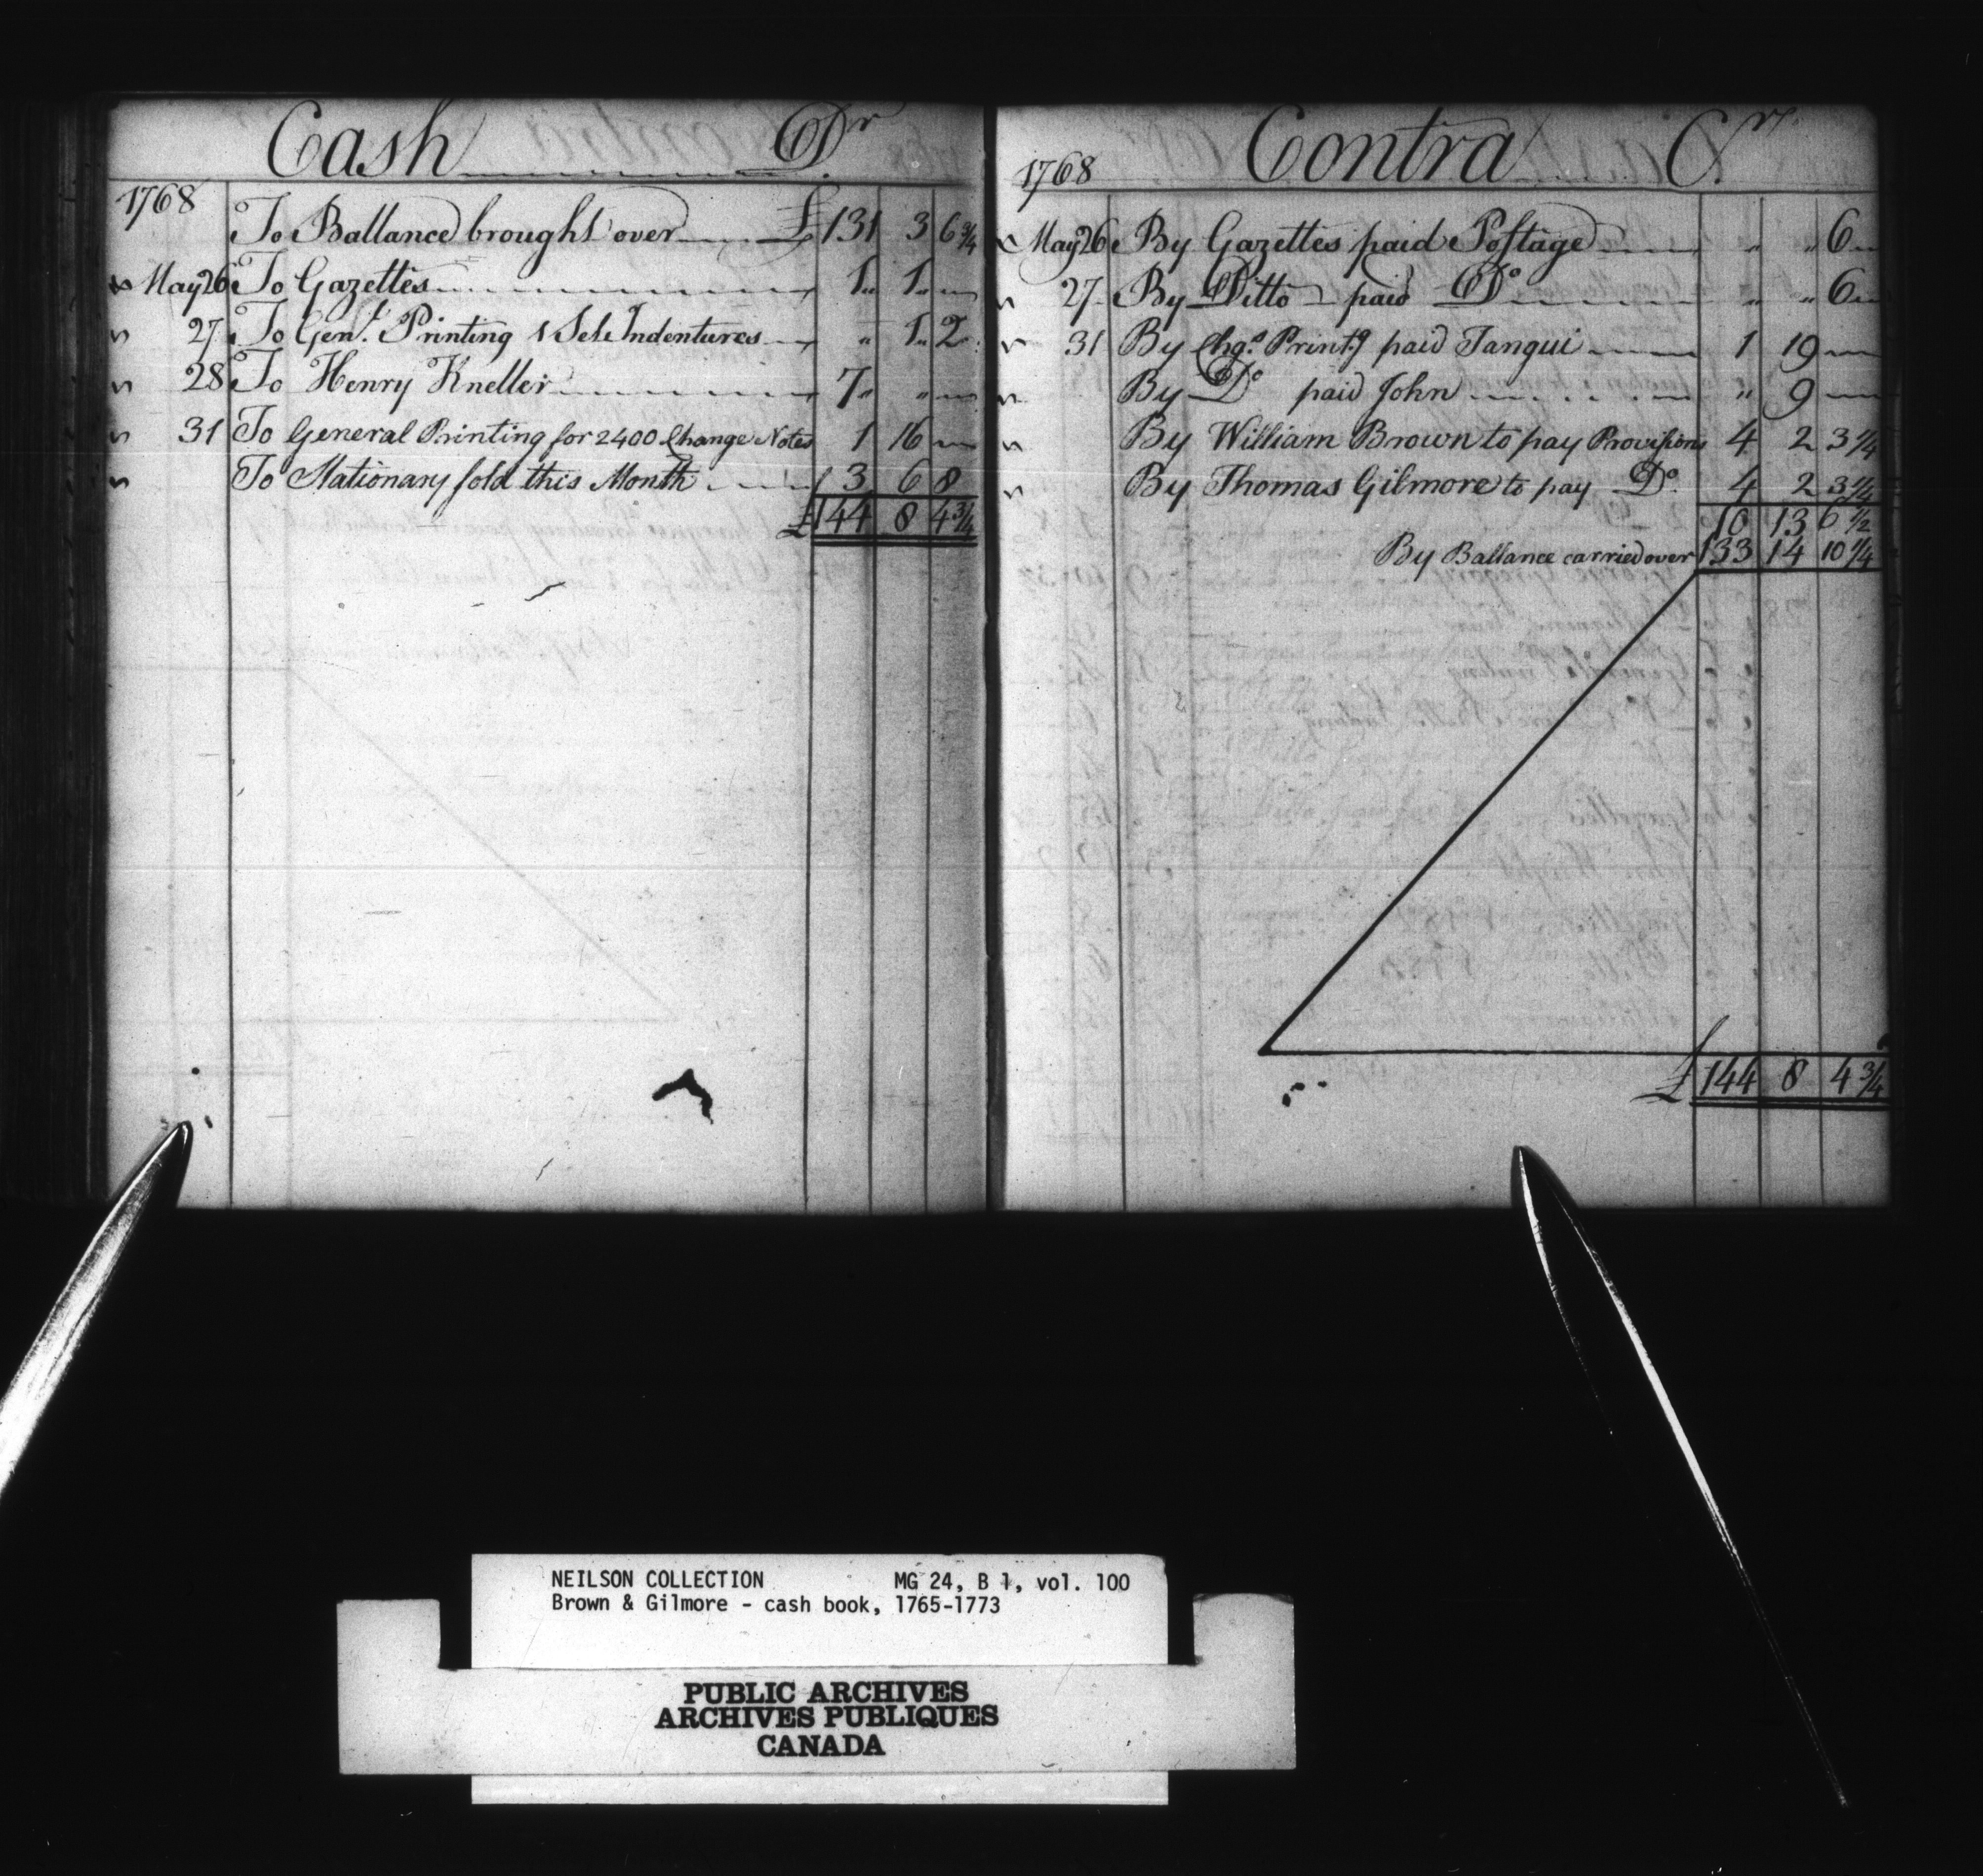 Cash Dr
1768
To Ballance brought over £ 131 3 6 3/4
May 26 To Gazettes 1 „ 1 „
27 To Genl. Printing 1 Sett Indentures „ 1 „ 2
28 To Henry Kneller 7 „ „
31 To General Printing for 2400 Change Notes 1 16
To Stationary sold this Month 3 6 8
£ 144 8 4 3/4
Contra Cr.
1768
May 26 By Gazettes paid Postage „ „ 6
27 By Ditto paid Do „ „ 6
31 By Chgs. Printg paid Tanqui 1 19
By Do paid John „ 9
By William Brown to pay Provisions 4 2 3 1/4
By Thomas Gilmore to pay Do. 4 2 3 1/4
10 13 6 1/2
By Ballance carried over 133 14 10 1/4
£ 144 8 4 3/4
NEILSON COLLECTION MG 24, B 1, vol. 100
Brown & Gilmore - cash book, 1765-1773
PUBLIC ARCHIVES
ARCHIVES PUBLIQUES
CANADA